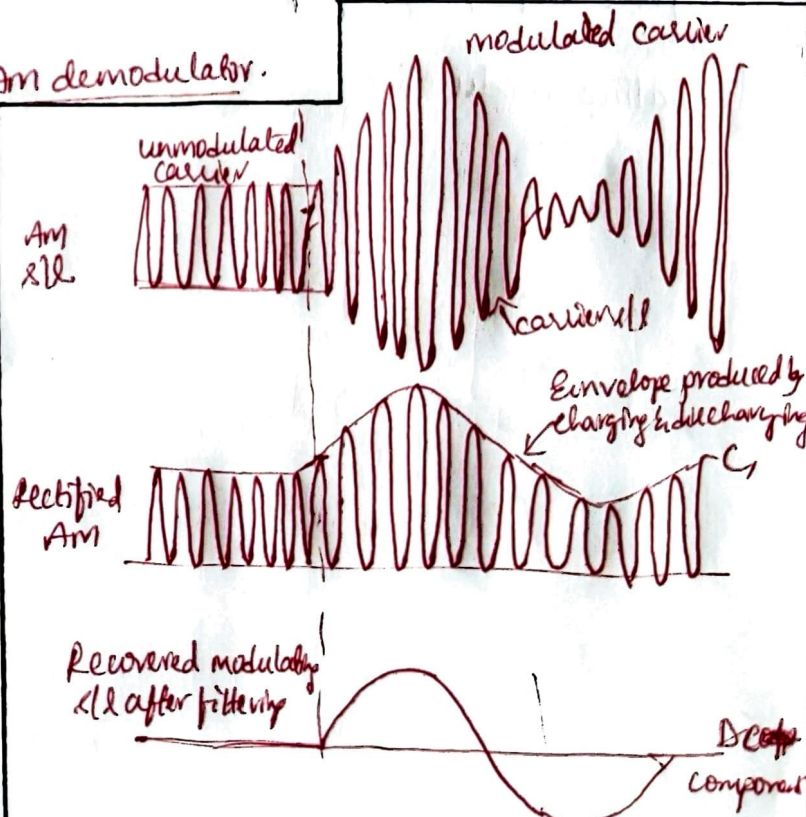 modulated carrier
Am demodulator.
unmodulated
carrier
Am
s/l
carrier s/l
Eunvelope produced by
charging & discharging
C,
Rectified
Am
Recovered modulating
s/l after filtering
DC
component